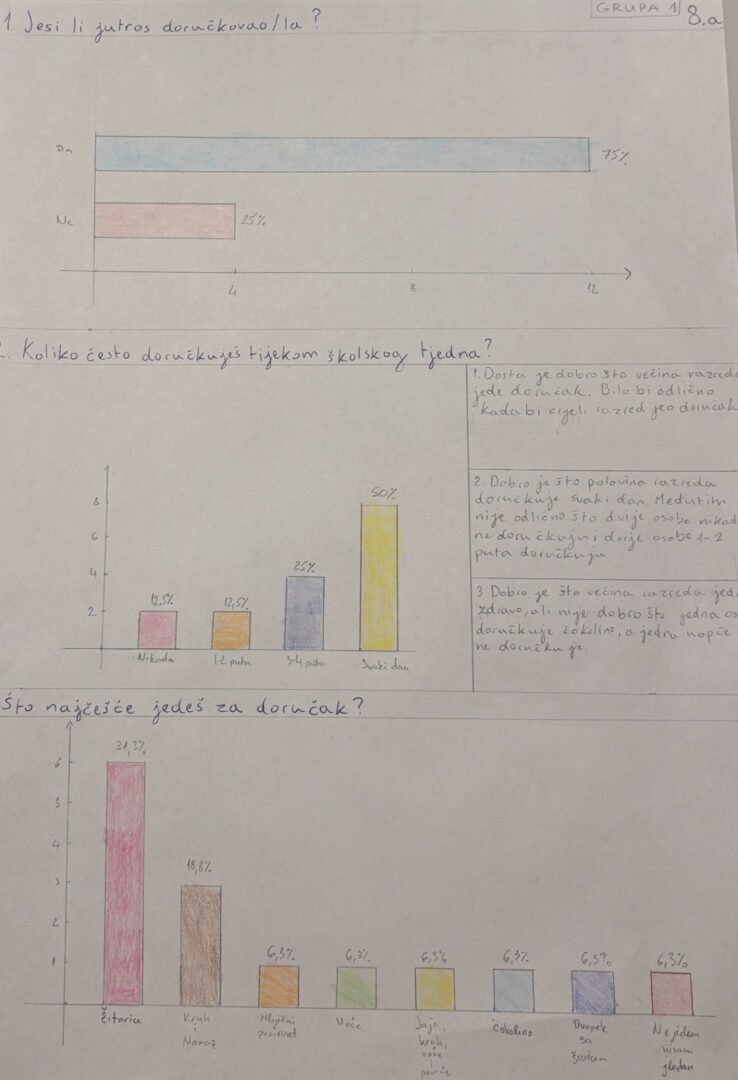 GRUPA 1 8.a
1. Jesi li jutros doručkovao/la ?
Da
75%
Ne
25%
4 8 12
2. Koliko često doručkuješ tijekom školskog tjedna?
8
6
4
2
12,5%
12,5%
25%
50%
Nikada
1-2 puta
3-4 puta
Svaki dan
1. Dosta je dobro što većina razreda
jede doručak. Bilo bi odlično
kada bi cijeli razred jeo doručak
2. Dobro je što polovina razreda
doručkuje svaki dan. Međutim
nije odlično što dvije osobe nikad
ne doručkuju i dvije osobe 1-2
puta doručkuju
3. Dobro je što većina razreda jede
zdravo, ali nije dobro što jedna os
doručkuje čokolino, a jedna uopće
ne doručkuje.
Što najčešće jedeš za doručak?
6
5
4
3
2
1
31,3%
18,8%
6,3%
6,3%
6,3%
6,3%
6,3%
6,3%
Žitarice
Kruh
i
Namaz
Mliječni
proizvod
Voće
Jaje,
kruh,
voće
i
povrće
Čokolino
Dvopek
sa
Ne jedem
nisam
gladan